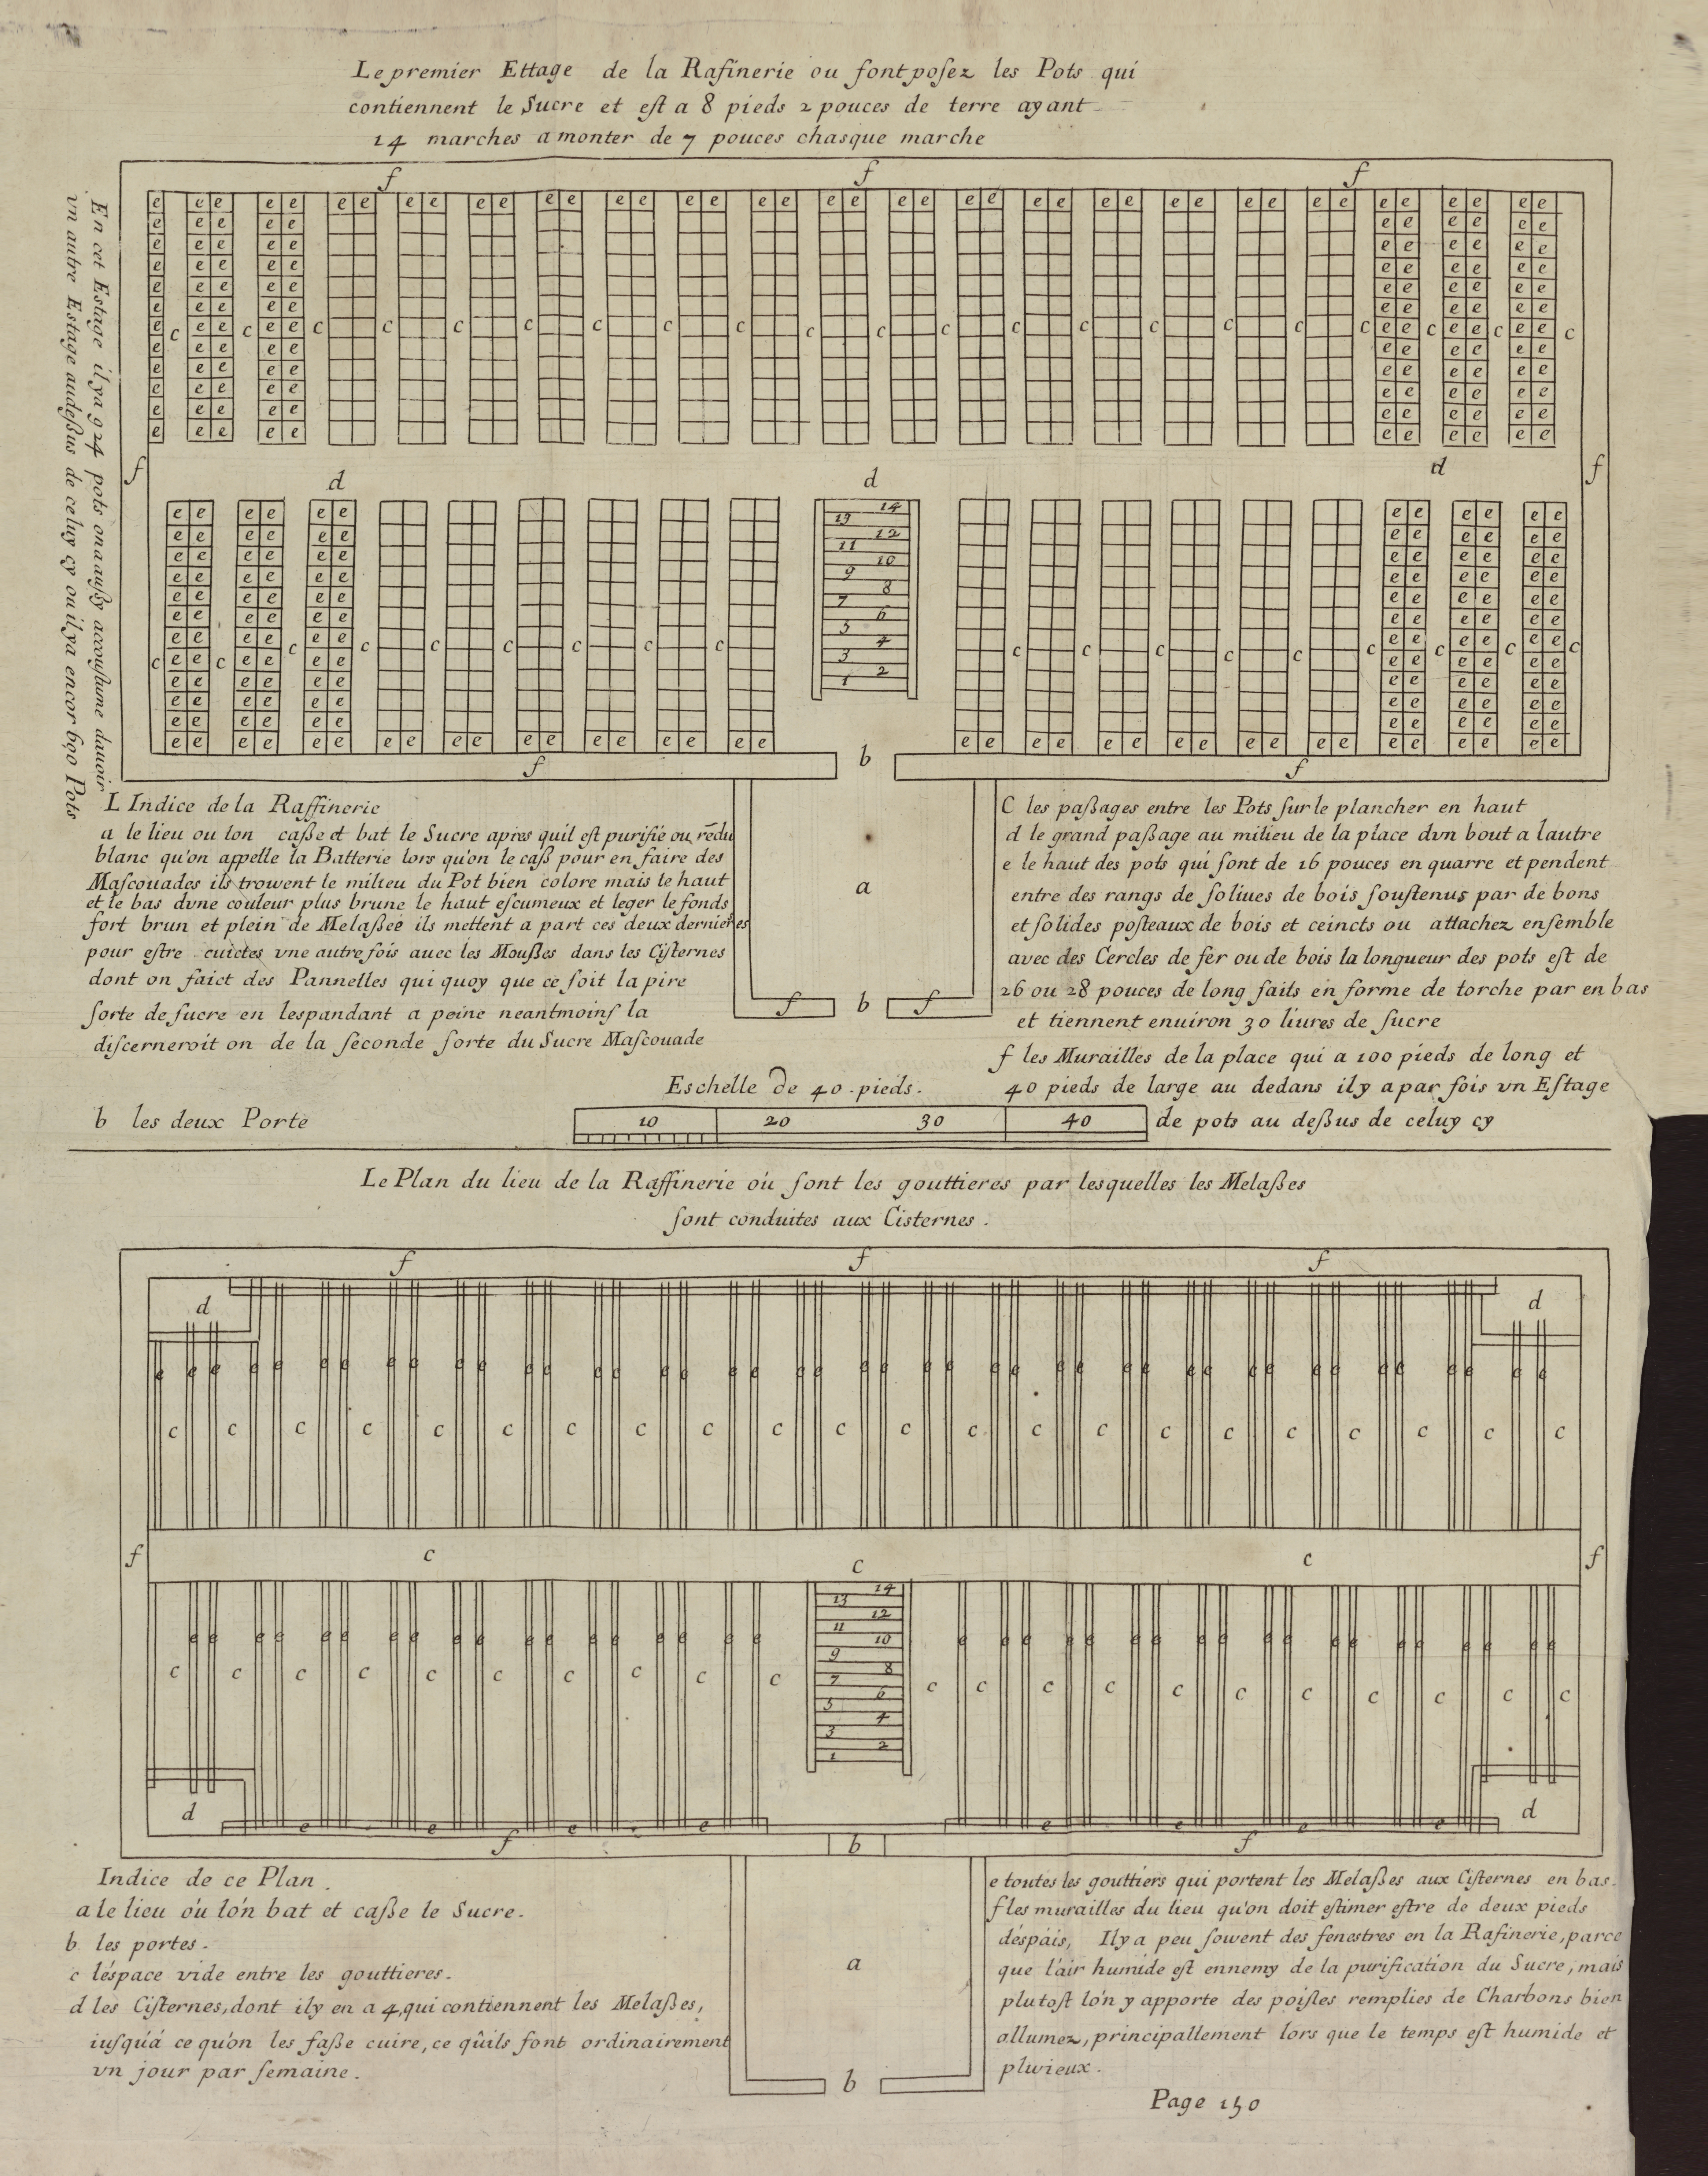 Le premier Ettage de la Rafinerie ou ſont poſez les Pots qui
contiennent le Sucre et eſt a 8 pieds 2 pouces de terre ayant
14 marches a monter de 7 pouces chasque marche
En cet Estage il y a 924 pots on a auſſy accouſtume dauoir
vn autre Estage audeſſus de celuy cy ou il y a encor 690 Pots
f f f
e e e e e e e e e e e e e e e e e e e e e e e e e e e e e e e e e e e e e e e e e
c c c c c c c c c c c c c c c c c c c c c
f d d d f
14
13
12
11
10
9
8
7
6
5
4
3
2
1
c c c c c c c c c c c c c c c c c c c
f b f
L Indice de la Raffinerie
a le lieu ou lon caſſe et bat le Sucre apres quil eſt purifié ou redu
blanc qu'on appelle la Batterie lors qu'on le caſſ pour en faire des
Maſcouades ils trouvent le milieu du Pot bien colore mais le haut
et le bas dvne couleur plus brune le haut eſcumeux et leger le fonds
fort brun et plein de Melaſſee ils mettent a part ces deux dernieres
pour eſtre cuictes vne autre fois auec les Mouſſes dans les Ciſternes
dont on faict des Pannelles qui quoy que ce ſoit la pire
ſorte de ſucre en lespandant a peine neantmoinſ la
diſcerneroit on de la ſeconde ſorte du Sucre Maſcouade
b les deux Porte
a
f b f
C les paſſages entre les Pots ſur le plancher en haut
d le grand paſſage au milieu de la place dvn bout a lautre
e le haut des pots qui ſont de 16 pouces en quarre et pendent
entre des rangs de ſoliues de bois ſouſtenus par de bons
et ſolides poſteaux de bois et ceincts ou attachez enſemble
avec des Cercles de fer ou de bois la longueur des pots eſt de
26 ou 28 pouces de long faits en forme de torche par en bas
et tiennent enuiron 30 liures de ſucre
f les Murailles de la place qui a 100 pieds de long et
40 pieds de large au dedans il y a par fois vn Eſtage
de pots au deſſus de celuy cy
Eschelle de 40 pieds.
10 20 30 40
Le Plan du lieu de la Raffinerie où ſont les gouttieres par lesquelles les Melaſſes
ſont conduites aux Cisternes.
f f f
d d
e e e e e e e e e e e e e e e e e e e e e e e e e e e e e e e e e e e e e e e e e
c c c c c c c c c c c c c c c c c c c c c c
f c c c f
14
13
12
11
10
9
8
7
6
5
4
3
2
1
c c c c c c c c c c c c c c c c c c c c c
d d
f b f
Indice de ce Plan.
a le lieu où lón bat et caſſe le Sucre.
b les portes.
c léspace vide entre les gouttieres.
d les Ciſternes, dont il y en a 4, qui contiennent les Melaſſes,
iuſqu'á ce qu'on les faſſe cuire, ce qûils font ordinairement
vn jour par ſemaine.
a
b
e toutes les gouttiers qui portent les Melaſſes aux Ciſternes en bas.
f les murailles du lieu qu'on doit eſtimer eſtre de deux pieds
déspáis, Il y a peu ſouvent des fenestres en la Rafinerie, parce
que láir humide eſt ennemy de la purification du Sucre, mais
plutoſt lón y apporte des poiſles remplies de Charbons bien
allumez, principallement lors que le temps eſt humide et
pluvieux.
Page 150